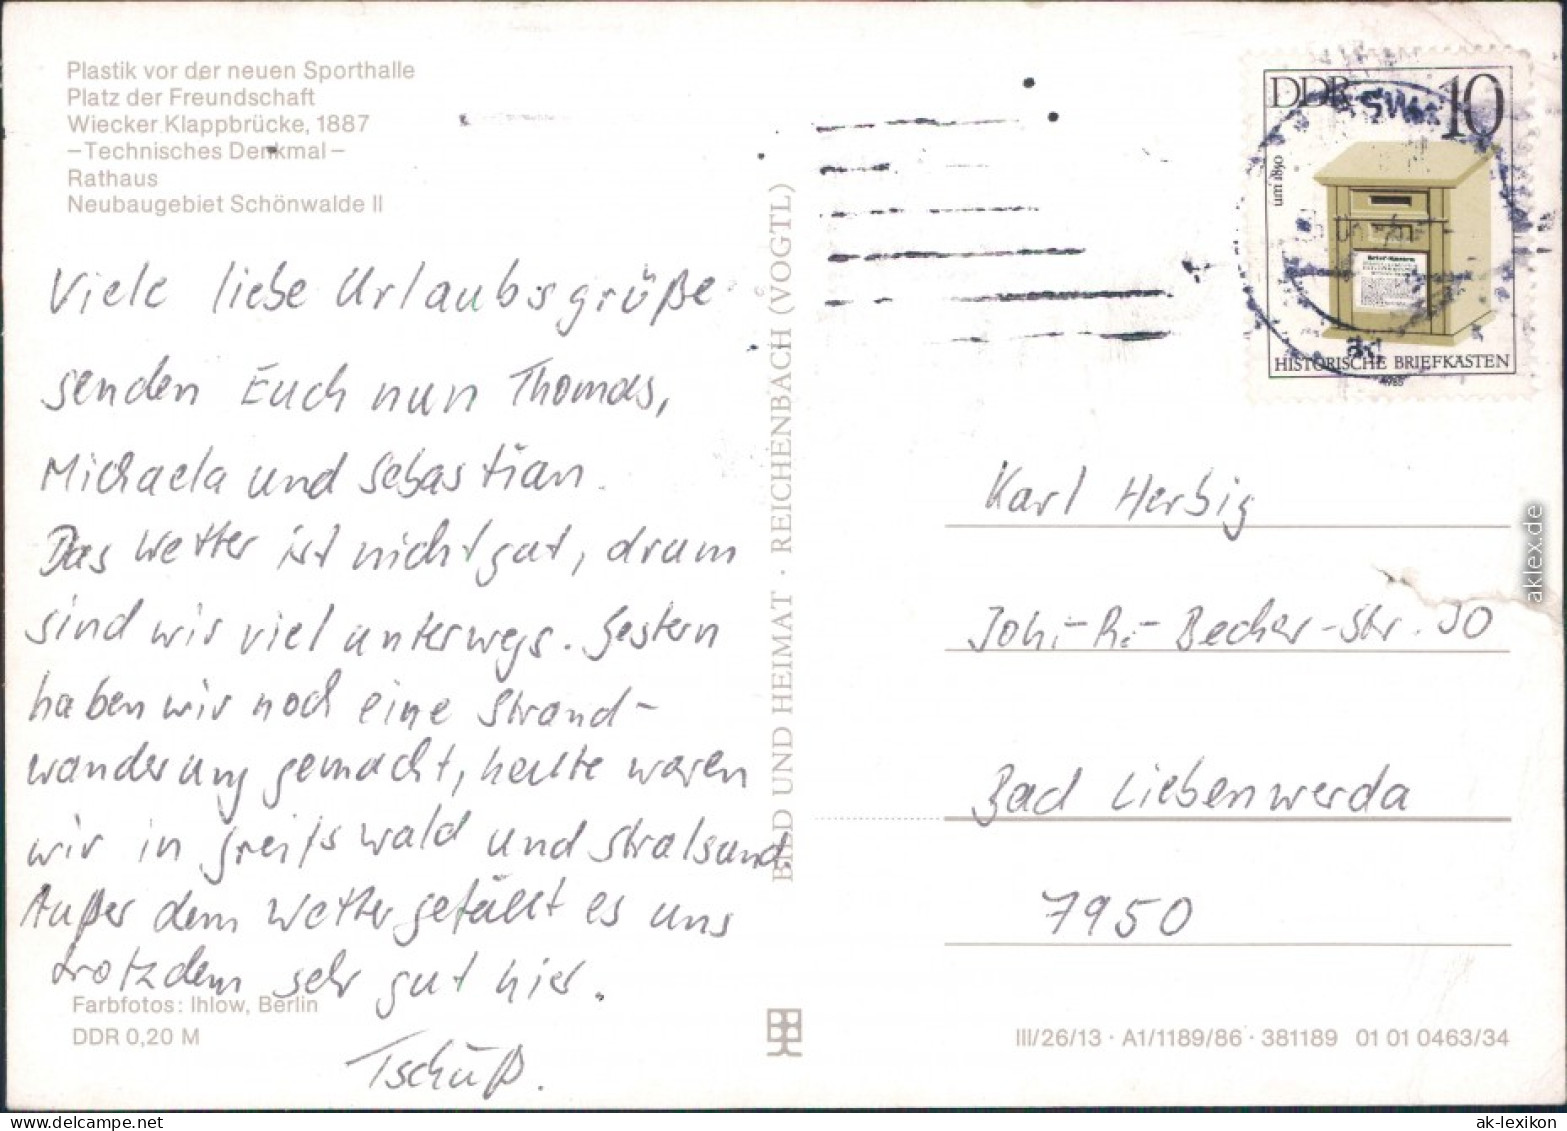 Plastik vor der neuen Sporthalle
Platz der Freundschaft
Wiecker Klappbrücke, 1887
–Technisches Denkmal–
Rathaus
Neubaugebiet Schönwalde II
Viele liebe Urlaubsgrüße
senden Euch nun Thomas,
Michaela und Sebastian.
Das Wetter ist nicht gut, drum
sind wir viel unterwegs. Gestern
haben wir noch eine Strand-
wanderung gemacht, heute waren
wir in Greifswald und Stralsund.
Außer dem Wetter gefällt es uns
trotzdem sehr gut hier.
Tschüß.
Farbfotos: Ihlow, Berlin
DDR 0,20 M
BILD UND HEIMAT · REICHENBACH (VOGTL)
DDR 10
um 1850
Brief-Kasten
HISTORISCHE BRIEFKÄSTEN
1985
Karl Herbig
Joh.-R.-Becher-Str. 30
Bad Liebenwerda
7950
III/26/13 · A1/1189/86 · 381189 01 01 0463/34
aklex.de
ak-lexikon